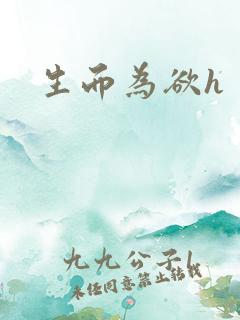 生而為欲h
九九公子l
未经同意禁止转载